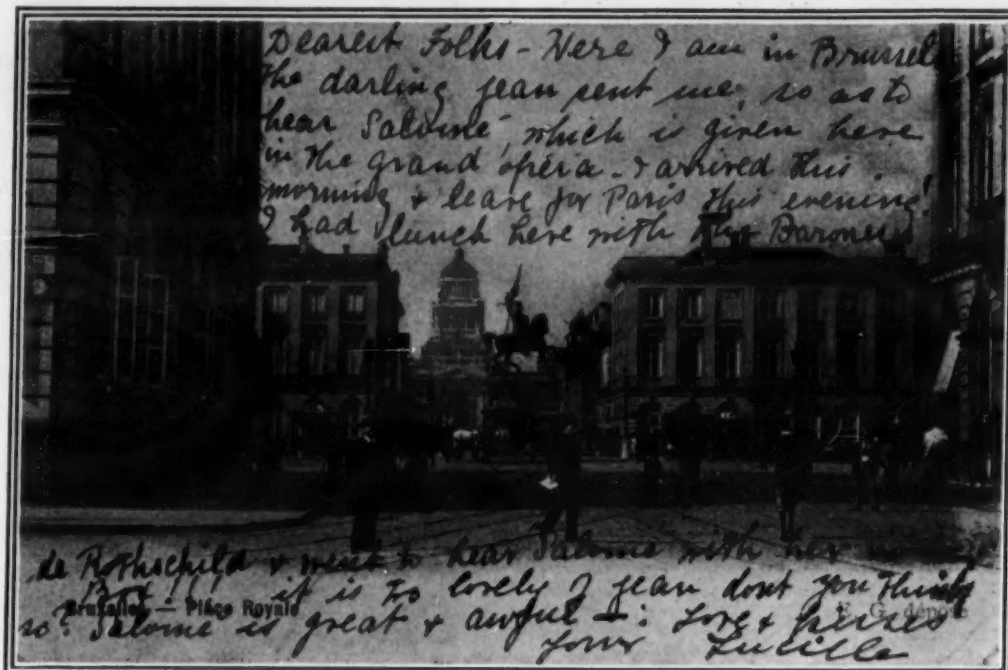 Dearest Folks - Here I am in Brussel
the darling Jean sent me, so as to
hear Salomé, which is given here
in the grand opéra - I arrived this
morning & leave for Paris this evening!
I had lunch here with the Baroness
de Rothschild & went to hear Salome with her in
it is too lovely of Jean dont you think
Bruxelles — Place Royale
so? Salome is great & awful — : Love & kisses
Your Lucille